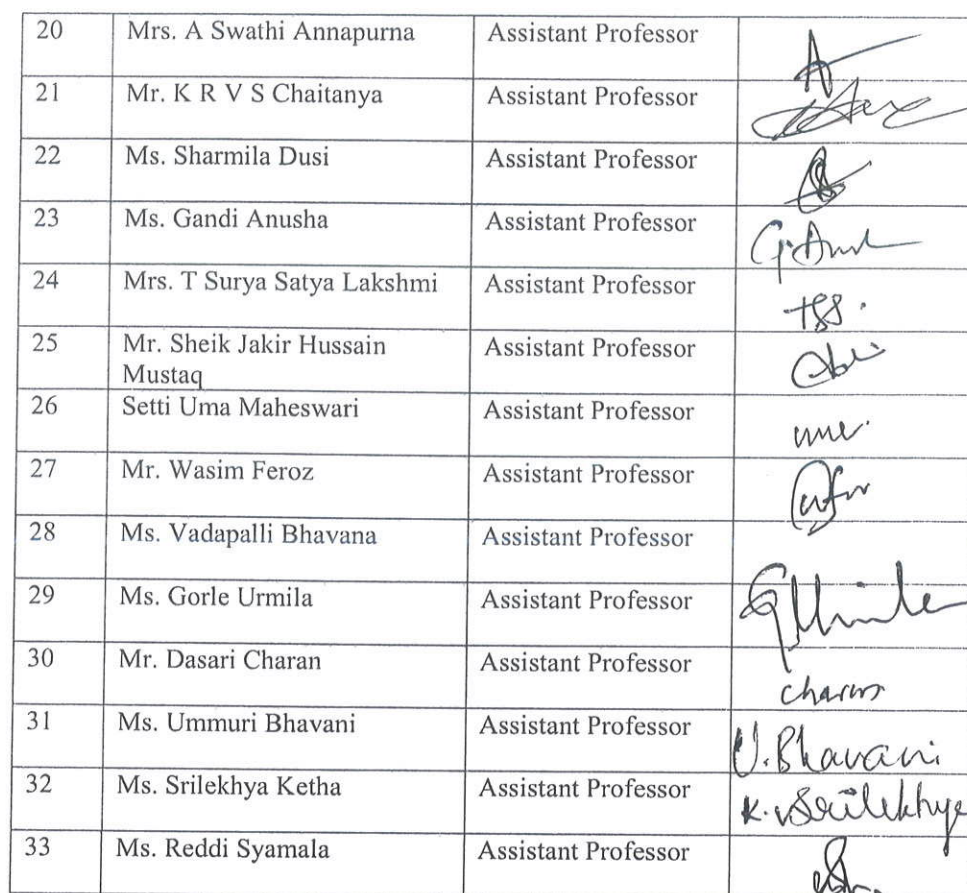 20 Mrs. A Swathi Annapurna Assistant Professor
21 Mr. K R V S Chaitanya Assistant Professor
22 Ms. Sharmila Dusi Assistant Professor
23 Ms. Gandi Anusha Assistant Professor
24 Mrs. T Surya Satya Lakshmi Assistant Professor
25 Mr. Sheik Jakir Hussain Assistant Professor
Mustaq
26 Setti Uma Maheswari Assistant Professor
27 Mr. Wasim Feroz Assistant Professor
28 Ms. Vadapalli Bhavana Assistant Professor
29 Ms. Gorle Urmila Assistant Professor
30 Mr. Dasari Charan Assistant Professor
31 Ms. Ummuri Bhavani Assistant Professor U. Bhavani
32 Ms. Srilekhya Ketha Assistant Professor
33 Ms. Reddi Syamala Assistant Professor